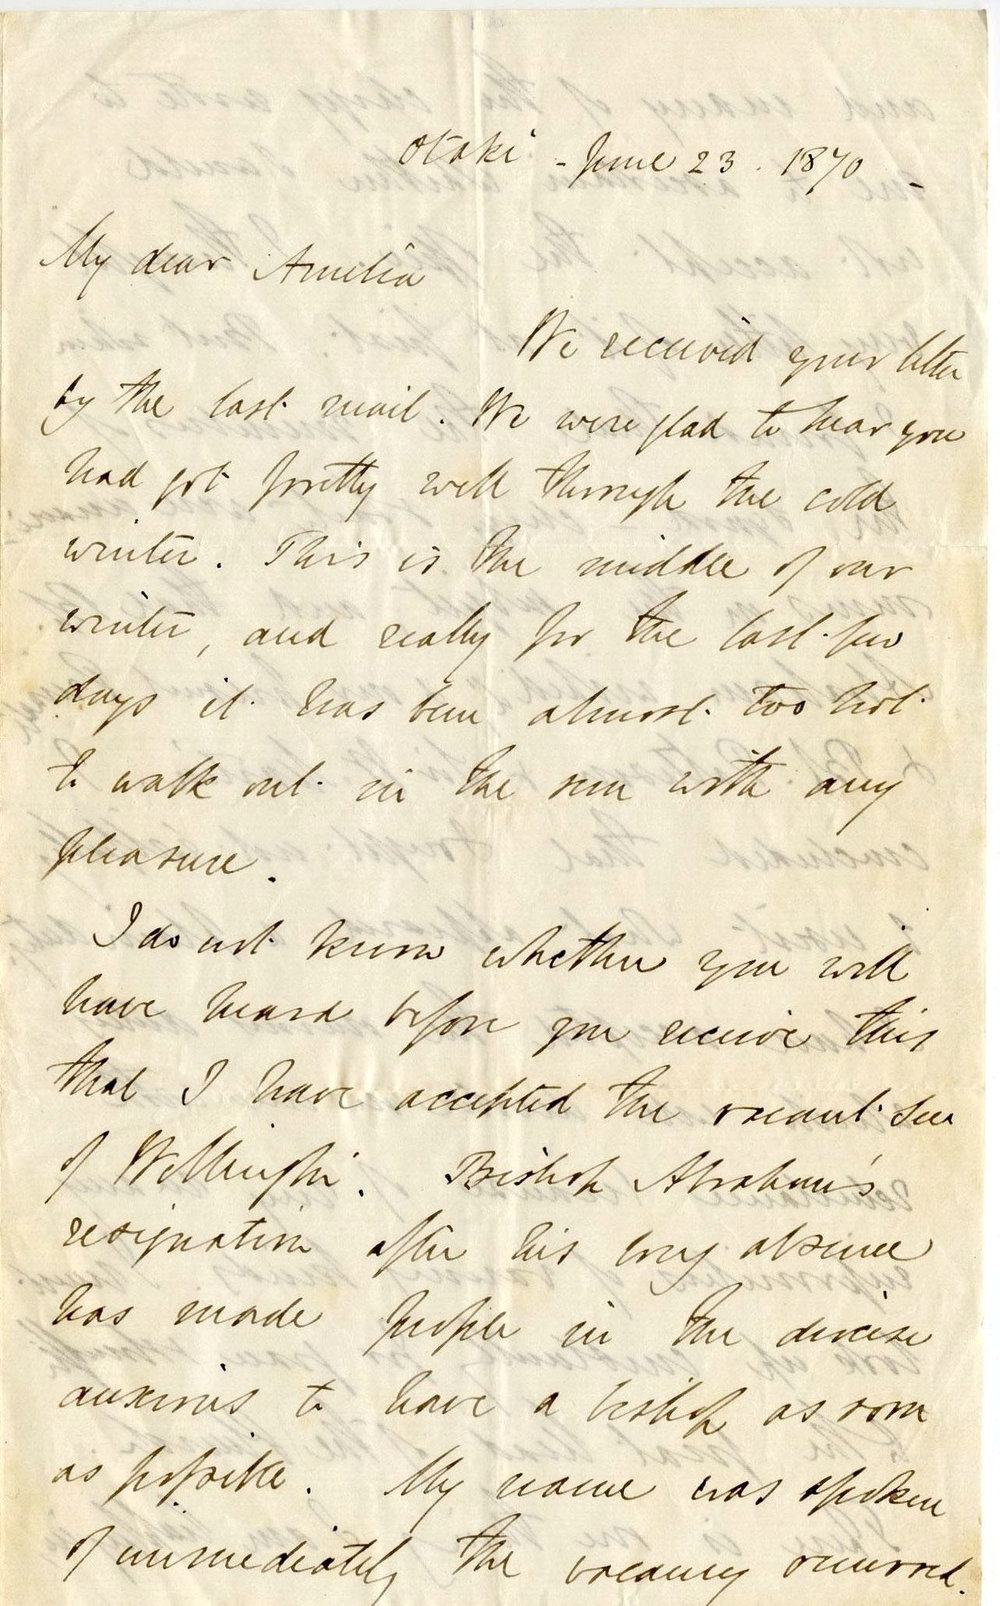 Otaki - June 23. 1870 -
My dear Amelia
We received your letter
by the last mail. We were glad to hear you
had got pretty well through the cold
winter. This is the middle of our
winter, and really for the last few
days it has been almost too hot
to walk out in the sun with any
pleasure.
I do not know whether you will
have heard before you receive this
that I have accepted the vacant See
of Wellington. Bishop Abraham's
resignation after his long absence
has made people in the diocese
anxious to have a bishop as soon
as possible. My name was spoken
of immediately the vacancy occurred.